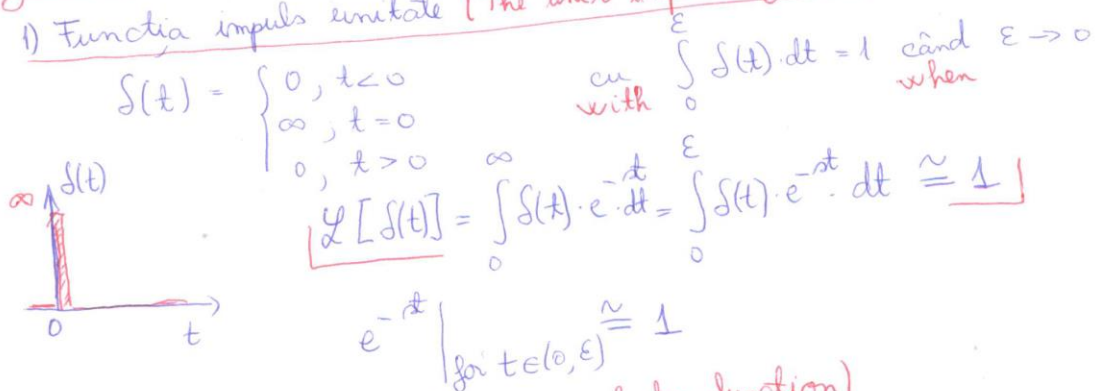 1) Functia impuls unitate (The
δ(t) = { 0, t<0
∞, t=0
0, t>0
cu ∫₀^ε δ(t)·dt = 1 când ε→0
with when
∞ δ(t)
ℒ[δ(t)] = ∫₀^∞ δ(t)·e^-st·dt = ∫₀^ε δ(t)·e^-st·dt ≅ 1
0 t
e^-st | for t∈(0,ε) ≅ 1
function)